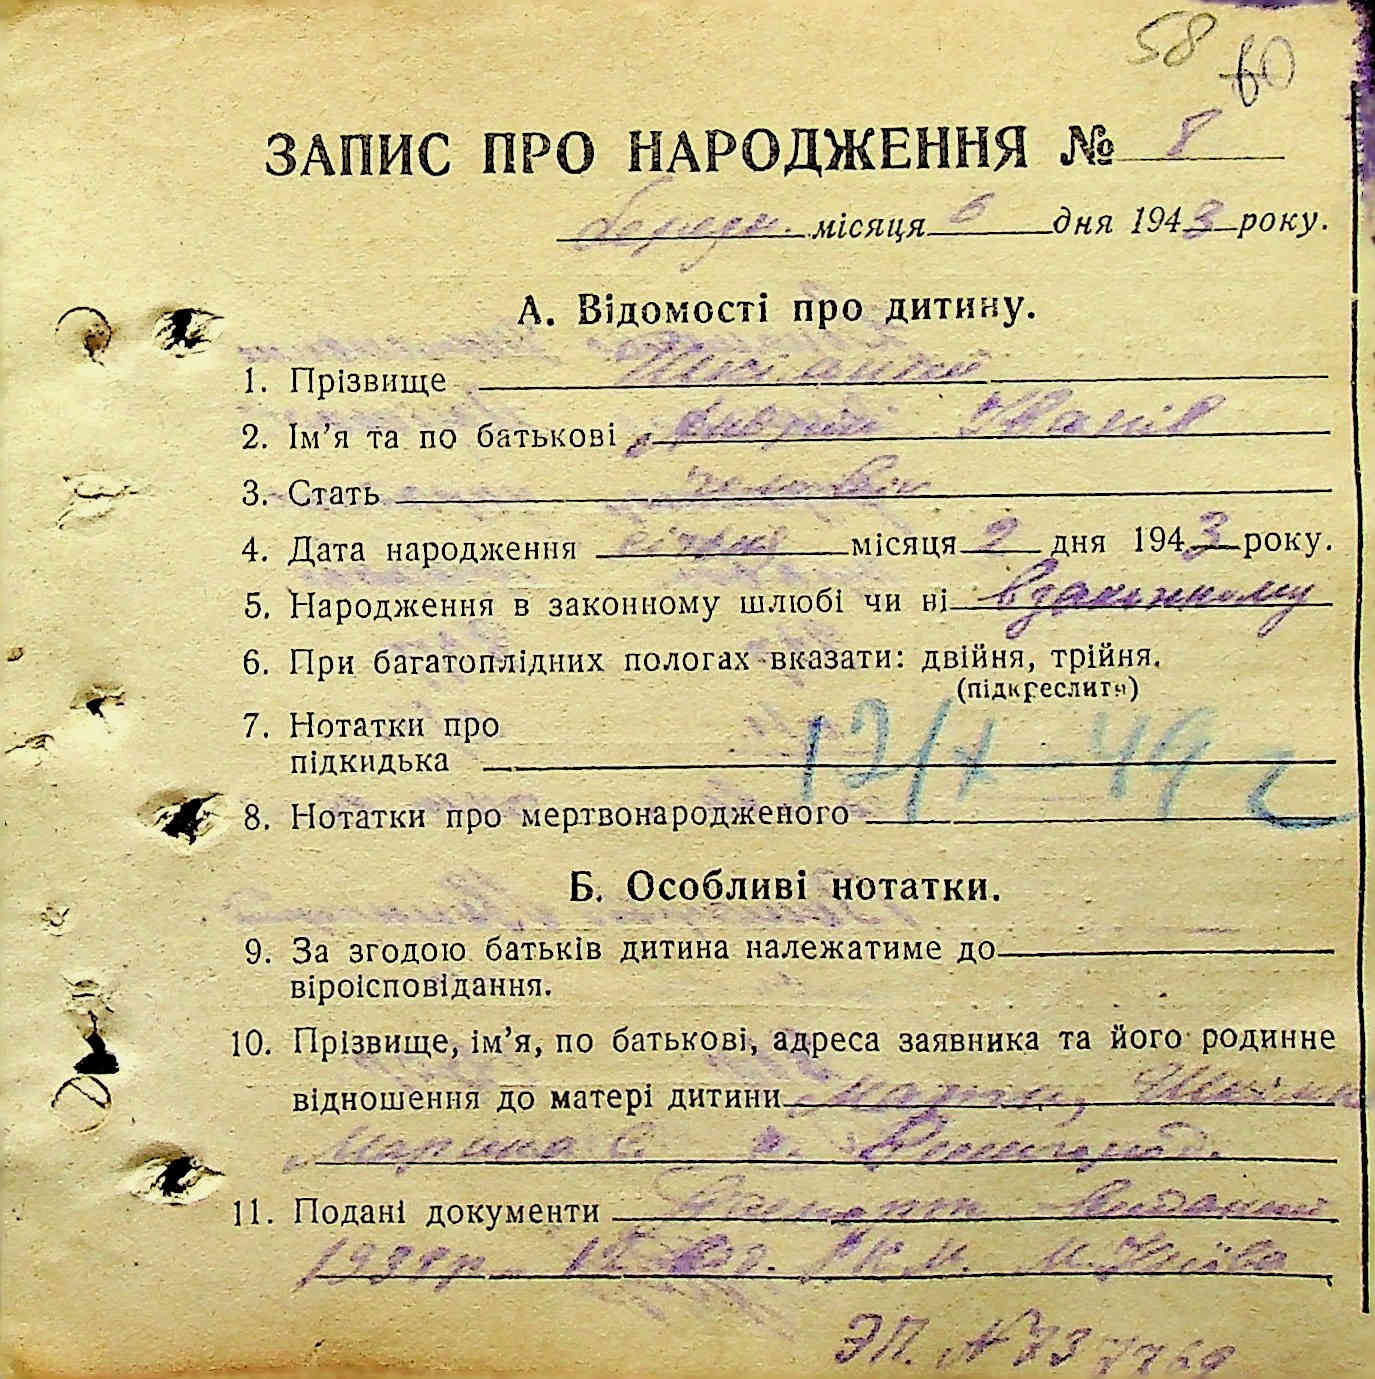 58 60
ЗАПИС ПРО НАРОДЖЕННЯ № 8
місяця 6 дня 1943 року.
А. Відомості про дитину.
1. Прізвище
2. Ім'я та по батькові Іванів
3. Стать чоловік
4. Дата народження січня місяця 2 дня 1943 року.
5. Народження в законному шлюбі чи ні в законному
6. При багатоплідних пологах вказати: двійня, трійня.
(підкреслити)
7. Нотатки про
підкидька
12/X-49 г
8. Нотатки про мертвонародженого
Б. Особливі нотатки.
9. За згодою батьків дитина належатиме до
віроісповідання.
10. Прізвище, ім'я, по батькові, адреса заявника та його родинне
відношення до матері дитини мати,
Марина С.
11. Подані документи Паспорт виданий
м. Київа
ЭП. №